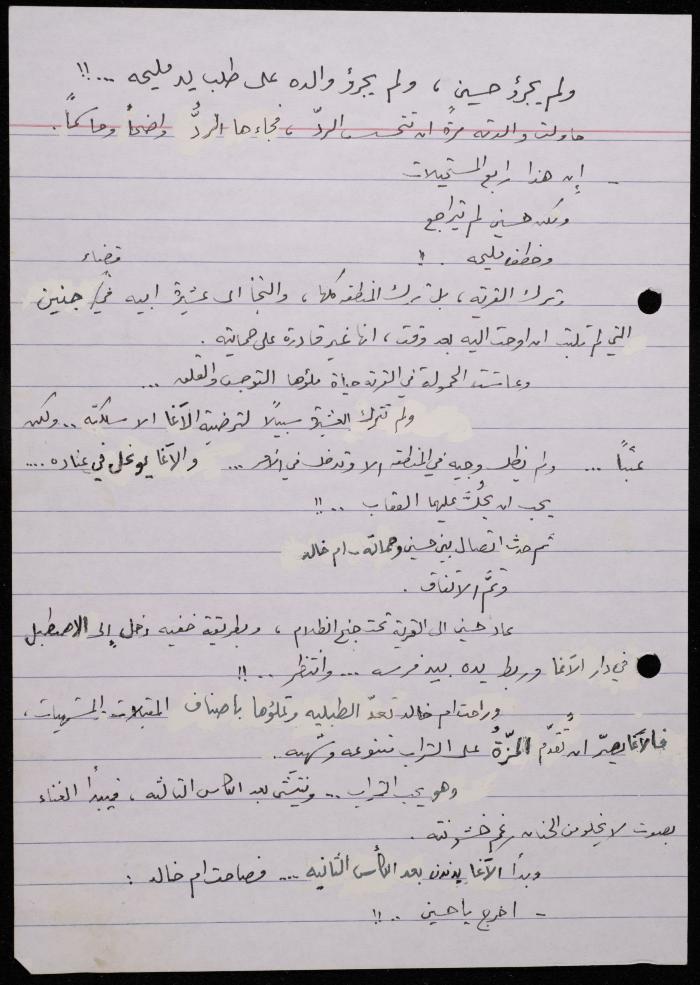 ولم يجرؤ حسين ، ولم يجرؤ والده على طلب يد مليحه ...!!
حاولت والدته مرةً ان تتحسس الردّ ، فجاءها الردُّ واضحاً وحاسماً .
- إن هذا رابع المستحيلات
ولكن حسين لم يتراجع
وخطف مليحه . !!
قضاء
وترك القرية ، بل ترك المنطقه كلها ، والتجأ الى عشيرة ابيه في / جنين
التي لم تلبث ان اوحت اليه بعد وقت ، انها غير قادرة على حمايته .
وعاشت الحمولة في القرية حياة ملؤها التوجس والقلق ...
ولم تترك العشيرة سبيلاً لترضية الآغا الا سلكته .. ولكن
عبثاً ... ولم يظل وجيه في المنطقه الا وتدخل في الأمر ... والآغا يوغل في عناده ....
يجب ان يحُلَّ عليهما العقاب ..!!
ثم حدث اتصال بين حسين وحماته - ام خالد
وتمَّ الاتفاق .
عاد حسين الى القرية تحت جنح الظلام ، وبطريقة خفيه دخل إلى الاصطبل
في دار الآغا وربط يده بيد فرسه ... وانتظر ..!!
وراحت ام خالد تعدّ الطبليه وتملؤها بأصناف المقبلات - المشهيات ،
فالآغا يصرّ ان تُقدّم المزّةُ على الشراب متنوعه وشهيه ..
وهو يحب الشراب .. وينتشي بعد الكاس الثالثه ، فيبدأ الغناء
بصوت لا يخلو من الحنان رغم خشونته .
وبدأ الآغا يدندن بعد الكأس الثانيه .... فصاحت ام خالد :
- اخرج يا حسين ..!!